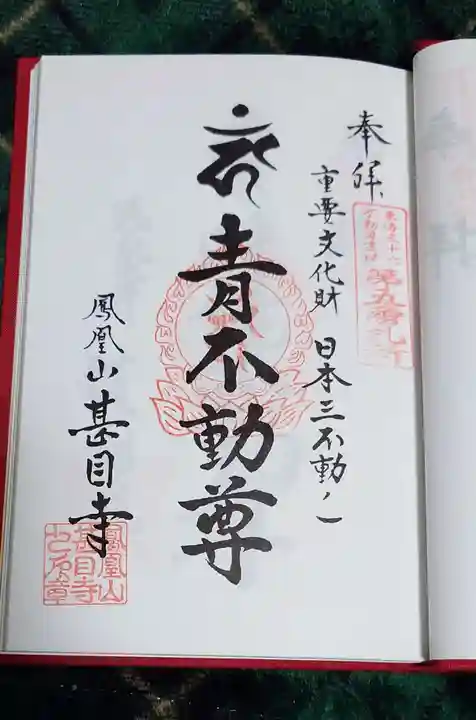 奉拝
重要文化財 日本三不動ノ一
青不動尊
鳳凰山甚目寺
鳳凰山
甚目寺